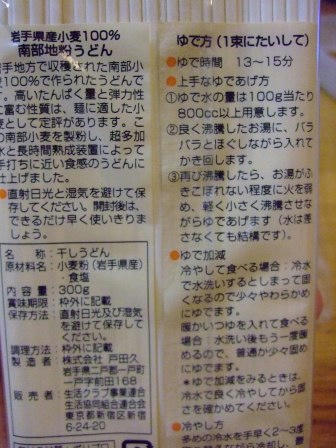 岩手県産小麦100%
南部地粉うどん
岩手地方で収穫された南部小
100%で作られたうどんで
す。高いたんぱく量と弾力性
に富む性質は、麺に適した小
麦として定評があります。こ
の南部小麦を製粉し、超多加
水と長時間熟成装置によって
手打ちに近い食感のうどんに
仕上げました。
●直射日光と湿気を避けて保
存してください。開封後は、
できるだけ早く使いきりま
しょう。
名　称：干しうどん
原材料名：小麦粉(岩手県産)
・食塩
内容量：300g
賞味期限：枠外に記載
保存方法：直射日光及び湿気
を避けて保存して
ください。
調理方法：枠外に記載
製造者：株式会社 戸田久
岩手県二戸郡一戸町
一戸字前田168
販売者：生活クラブ事業連合
生活協同組合連合会
東京都新宿区新宿
6-24-20
ゆで方(1束にたいして)
●ゆで時間　13～15分
●上手なゆであげ方
①ゆで水の量は100g当たり
800cc以上用意します。
②良く沸騰したお湯に、バラ
バラとほぐしながら入れて
かき回します。
③再び沸騰したら、お湯がふ
きこぼれない程度に火を弱
め、軽く小さく沸騰させな
がらゆであげます(水は差
さなくても結構です)。
●ゆで加減
冷やして食べる場合：冷水
で水洗いするとしまって固
くなるので少々やわらかめ
にゆでます。
暖かいつゆを入れて食べる
場合：水洗い後もう一度暖
めるので、普通か少々固め
にゆでます。
*ゆで加減をみるときは、
冷水で良く冷やしてから固
さを確かめてください。
●冷やし方
多めの冷水を手早く2～3度